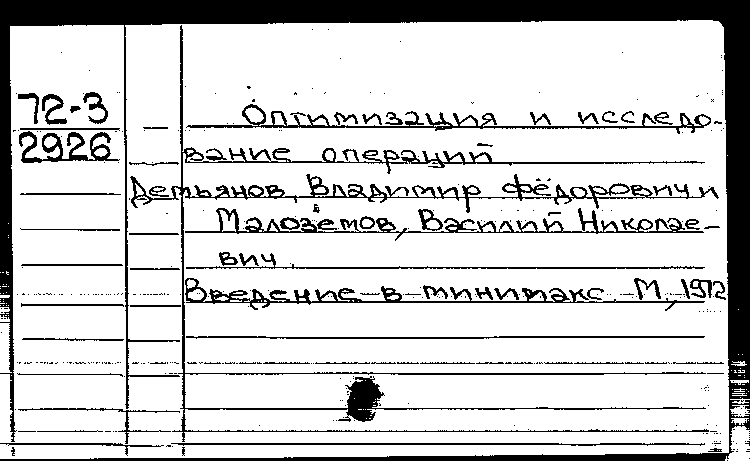 72-3
2926
Оптимизация и исследо-
вание операций.
Демьянов, Владимир Фёдорович и
Малозёмов, Василий Николае-
вич.
Введение в минимакс. М, 1972